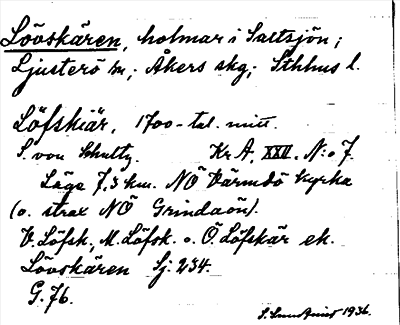 Lövskären, holmar i Saltsjön;
Ljusterö sn; Åkers skg; Sthlms l.
Löfskiär, 1700-tal. mitt.
S. von Schultz. Kr A. XXII. N:o 7.
Läge 7,3 km. NÖ Värmdö kyrka
(o. strax NÖ Grindaön).
V. Löfsk., M. Löfsk. o. Ö Löfskär ek.
Lövskären Sj: 234.
G: 76.
1936.